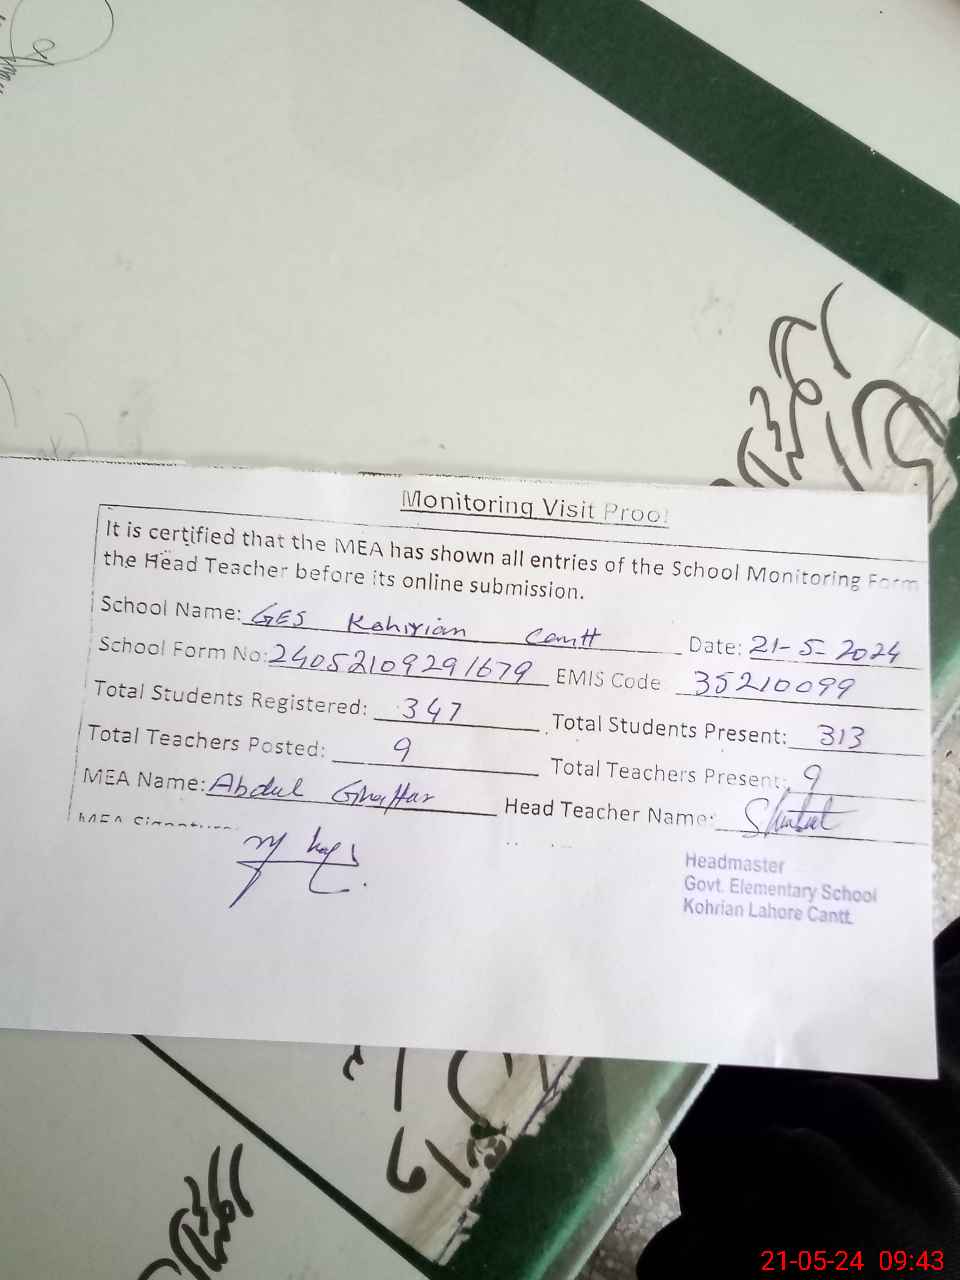 Monitoring Visit Proof
It is certified that the MEA has shown all entries of the School Monitoring Form
the Head Teacher before its online submission.
School Name: GES Kohirian Cantt Date: 21-5-2024
School Form No: 24052109291679 EMIS Code 35210099
Total Students Registered: 347 Total Students Present: 313
Total Teachers Posted: 9 Total Teachers Present: 9
MEA Name: Abdul Ghaffar Head Teacher Name:
MEA Signature:
Headmaster
Govt. Elementary School
Kohrian Lahore Cantt.
21-05-24 09:43